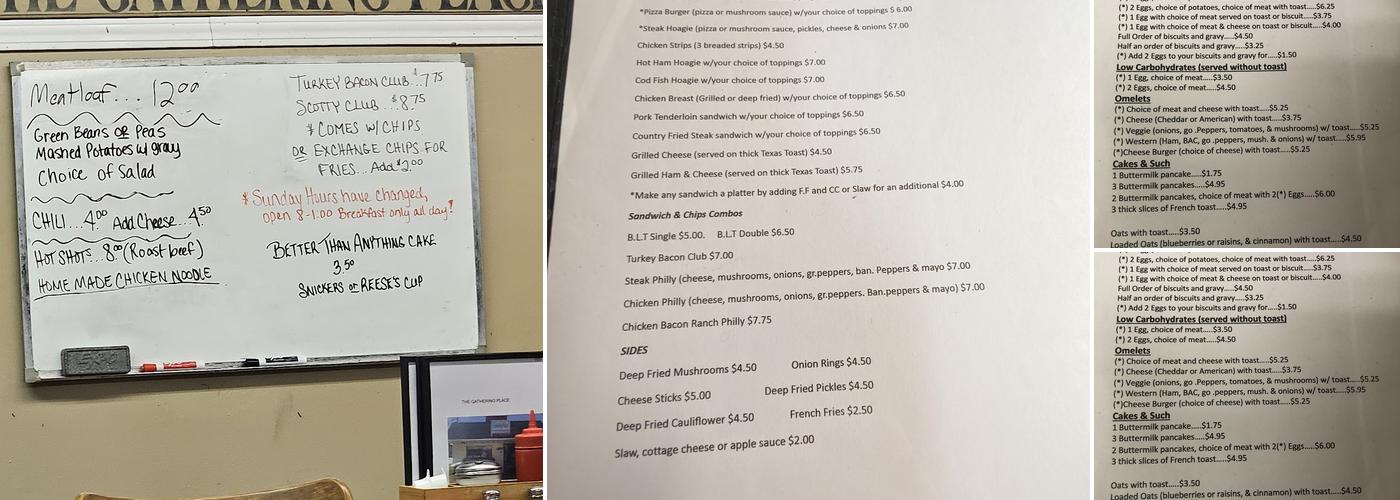 THE GATHERING PLACE
Meatloaf... 12.00
Green Beans OR Peas
Mashed Potatoes w/ gravy
Choice of Salad
CHILI...4.00 Add Cheese...4.50
HOT SHOTS..8.00 (Roast beef)
HOME MADE CHICKEN NOODLE
TURKEY BACON CLUB..$7.75
SCOTTY CLUB...$8.75
* COMES W/ CHIPS
OR EXCHANGE CHIPS FOR
FRIES...Add $2.00
* Sunday Hours have changed,
open 8-1:00 Breakfast only all day!
BETTER THAN ANYTHING CAKE
3.50
SNICKERS or REESE'S CUP
EXPO
THE GATHERING PLACE
*Pizza Burger (pizza or mushroom sauce) w/your choice of toppings $ 6.00
*Steak Hoagie (pizza or mushroom sauce, pickles, cheese & onions $7.00
Chicken Strips (3 breaded strips) $4.50
Hot Ham Hoagie w/your choice of toppings $7.00
Cod Fish Hoagie w/your choice of toppings $7.00
Chicken Breast (Grilled or deep fried) w/your choice of toppings $6.50
Pork Tenderloin sandwich w/your choice of toppings $6.50
Country Fried Steak sandwich w/your choice of toppings $6.50
Grilled Cheese (served on thick Texas Toast) $4.50
Grilled Ham & Cheese (served on thick Texas Toast) $5.75
*Make any sandwich a platter by adding F.F and CC or Slaw for an additional $4.00
Sandwich & Chips Combos
B.L.T Single $5.00. B.L.T Double $6.50
Turkey Bacon Club $7.00
Steak Philly (cheese, mushrooms, onions, gr.peppers, ban. Peppers & mayo $7.00
Chicken Philly (cheese, mushrooms, onions, gr.peppers. Ban.peppers & mayo) $7.00
Chicken Bacon Ranch Philly $7.75
SIDES
Deep Fried Mushrooms $4.50 Onion Rings $4.50
Cheese Sticks $5.00 Deep Fried Pickles $4.50
Deep Fried Cauliflower $4.50 French Fries $2.50
Slaw, cottage cheese or apple sauce $2.00
(*) 2 Eggs, choice of potatoes, choice of meat with toast.....$6.25
(*) 1 Egg with choice of meat served on toast or biscuit.....$3.75
(*) 1 Egg with choice of meat & cheese on toast or biscuit.....$4.00
Full Order of biscuits and gravy.....$4.50
Half an order of biscuits and gravy.....$3.25
(*) Add 2 Eggs to your biscuits and gravy for.....$1.50
Low Carbohydrates (served without toast)
(*) 1 Egg, choice of meat.....$3.50
(*) 2 Eggs, choice of meat.....$4.50
Omelets
(*) Choice of meat and cheese with toast.....$5.25
(*) Cheese (Cheddar or American) with toast.....$3.75
(*) Veggie (onions, go .Peppers, tomatoes, & mushrooms) w/ toast.....$5.25
(*) Western (Ham, BAC, go .peppers, mush. & onions) w/ toast.....$5.95
(*)Cheese Burger (choice of cheese) with toast.....$5.25
Cakes & Such
1 Buttermilk pancake.....$1.75
3 Buttermilk pancakes.....$4.95
2 Buttermilk pancakes, choice of meat with 2(*) Eggs.....$6.00
3 thick slices of French toast.....$4.95
Oats with toast.....$3.50
Loaded Oats (blueberries or raisins, & cinnamon) with toast.....$4.50
(*) 2 Eggs, choice of potatoes, choice of meat with toast.....$6.25
(*) 1 Egg with choice of meat served on toast or biscuit.....$3.75
(*) 1 Egg with choice of meat & cheese on toast or biscuit.....$4.00
Full Order of biscuits and gravy.....$4.50
Half an order of biscuits and gravy.....$3.25
(*) Add 2 Eggs to your biscuits and gravy for.....$1.50
Low Carbohydrates (served without toast)
(*) 1 Egg, choice of meat.....$3.50
(*) 2 Eggs, choice of meat.....$4.50
Omelets
(*) Choice of meat and cheese with toast.....$5.25
(*) Cheese (Cheddar or American) with toast.....$3.75
(*) Veggie (onions, go .Peppers, tomatoes, & mushrooms) w/ toast.....$5.25
(*) Western (Ham, BAC, go .peppers, mush. & onions) w/ toast.....$5.95
(*)Cheese Burger (choice of cheese) with toast.....$5.25
Cakes & Such
1 Buttermilk pancake.....$1.75
3 Buttermilk pancakes.....$4.95
2 Buttermilk pancakes, choice of meat with 2(*) Eggs.....$6.00
3 thick slices of French toast.....$4.95
Oats with toast.....$3.50
Loaded Oats (blueberries or raisins, & cinnamon) with toast.....$4.50